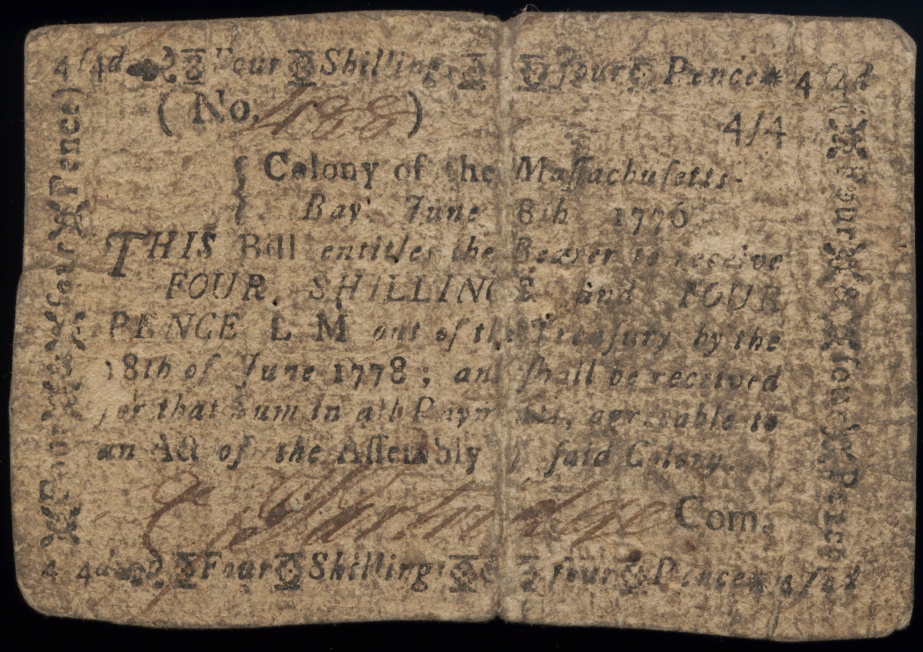 4ſ4d Four Shillings four Pence 4ſ4d
(No. 488)
4/4
Colony of the Maſſachuſetts-
Bay June 8th 1776
THIS Bill entitles the Bearer to receive
FOUR SHILLINGS and FOUR
PENCE L M out of the Treaſury by the
18th of June 1778 ; and ſhall be received
for that Sum in all Payments, agreeable to
an Act of the Aſſembly of ſaid Colony.
Com.
4 4d Four Shillings four Pence 4ſ4d
Four four Pence
Four & four Pence